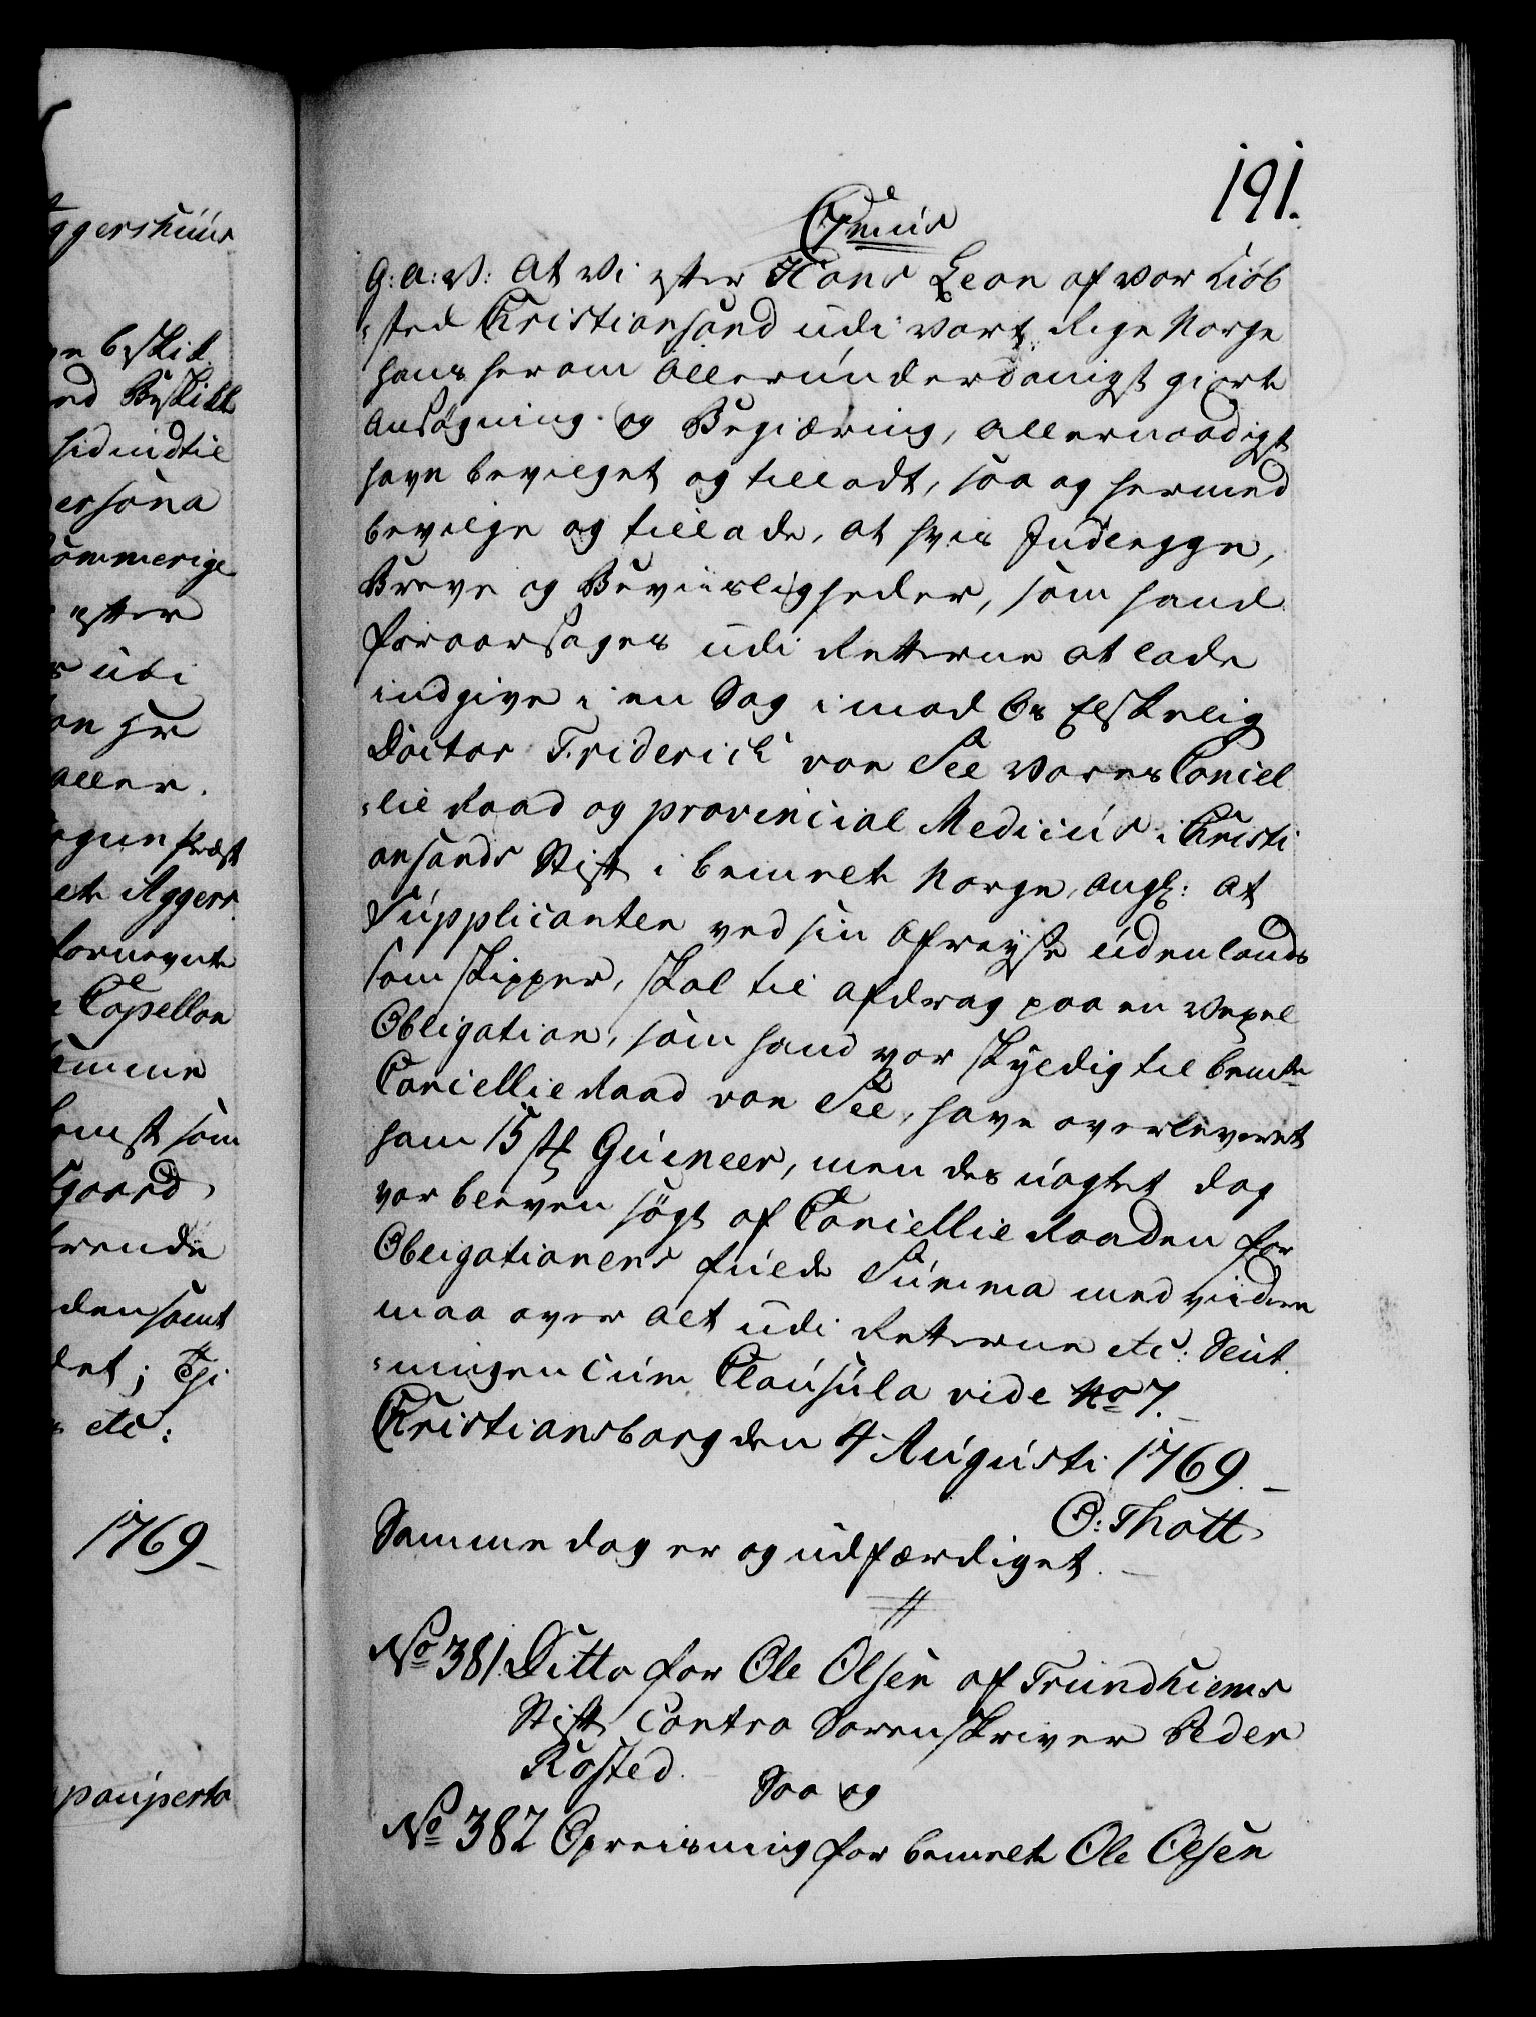 191.
Genus
G: A: V: At Vi efter Hans Leon af vor Kiöb
=sted Christiansand udi vort Rige Norge
hans herom allerunderdanigst giorte
Ansøgning og Begiæring, allernaadigst
have bevilget og tilladt, saa og hermed
bevilge og tillade, at hvis Indlegge,
Breve og Beviisligheder, som hand
foraarsages udi Retterne at lade
indgive i en Sag imod Os Elskelig
Doctor Friderich von See vores Cancel
=lie Raad og provincial Medicus i Christi
ansands Stift i bemelte Norge, angl: at
Supplicanten ved sin Afreyse udenlands
som Skipper, skal til afdrag paa en Vexel
Obligation, som hand var skyldig til bemte
Cancellie Raad von See, have overleveret
ham 15 st Guineer, men des uagtet dog
var bleven søgt af Cancellie Raaden for
Obligationens fulde Summa med viidere
maa over alt udi Retterne etc: Slut
=ningen cum Clausula vide No 7.
Christiansborg den 4 Augusti 1769.
O: Thott
Samme dag er og udfærdiget.
No 381. Ditto for Ole Olsen af Trundhiems
Stift Contra Sorenskriver Peder
Rosted.
Saa og
No 382 Opreisning for bemelte Ole Olsen
ggershuus
beskik
Beskikk
hidindtil
ersona
ommerige
efter
udi
hr
aller
ogneprest
Aggers
fornevnte
Capellan
amme
som
gaard
samt
det; Thi
etc:
1769
pauperta